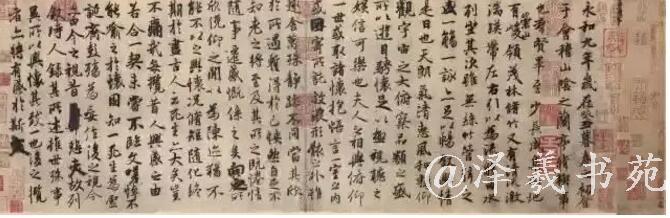 永和九年歲在癸丑暮春之初會
于會稽山陰之蘭亭脩禊事
也羣賢畢至少長咸集此地
有崇山峻領茂林脩竹又有清流激
湍暎帶左右引以為流觴曲水
列坐其次雖無絲竹管弦之
盛一觴一詠亦足以暢敘幽情
是日也天朗氣清惠風和暢仰
觀宇宙之大俯察品類之盛
所以遊目騁懷足以極視聽之
娛信可樂也夫人之相與俯仰
一世或取諸懷抱悟言一室之內
或因寄所託放浪形骸之外雖
趣舍萬殊靜躁不同當其欣
於所遇蹔得於己怏然自足不
知老之將至及其所之既惓情
隨事遷感慨係之矣向之所
欣俛仰之間以為陳跡猶不
能不以之興懷況脩短隨化終
期於盡古人云死生亦大矣豈
不痛哉每攬昔人興感之由
若合一契未嘗不臨文嗟悼不
能喻之於懷固知一死生為虛
誕齊彭殤為妄作後之視今
亦由今之視昔悲夫故列
敘時人錄其所述雖世殊事
異所以興懷其致一也後之攬
者亦將有感於斯文
@泽羲书苑